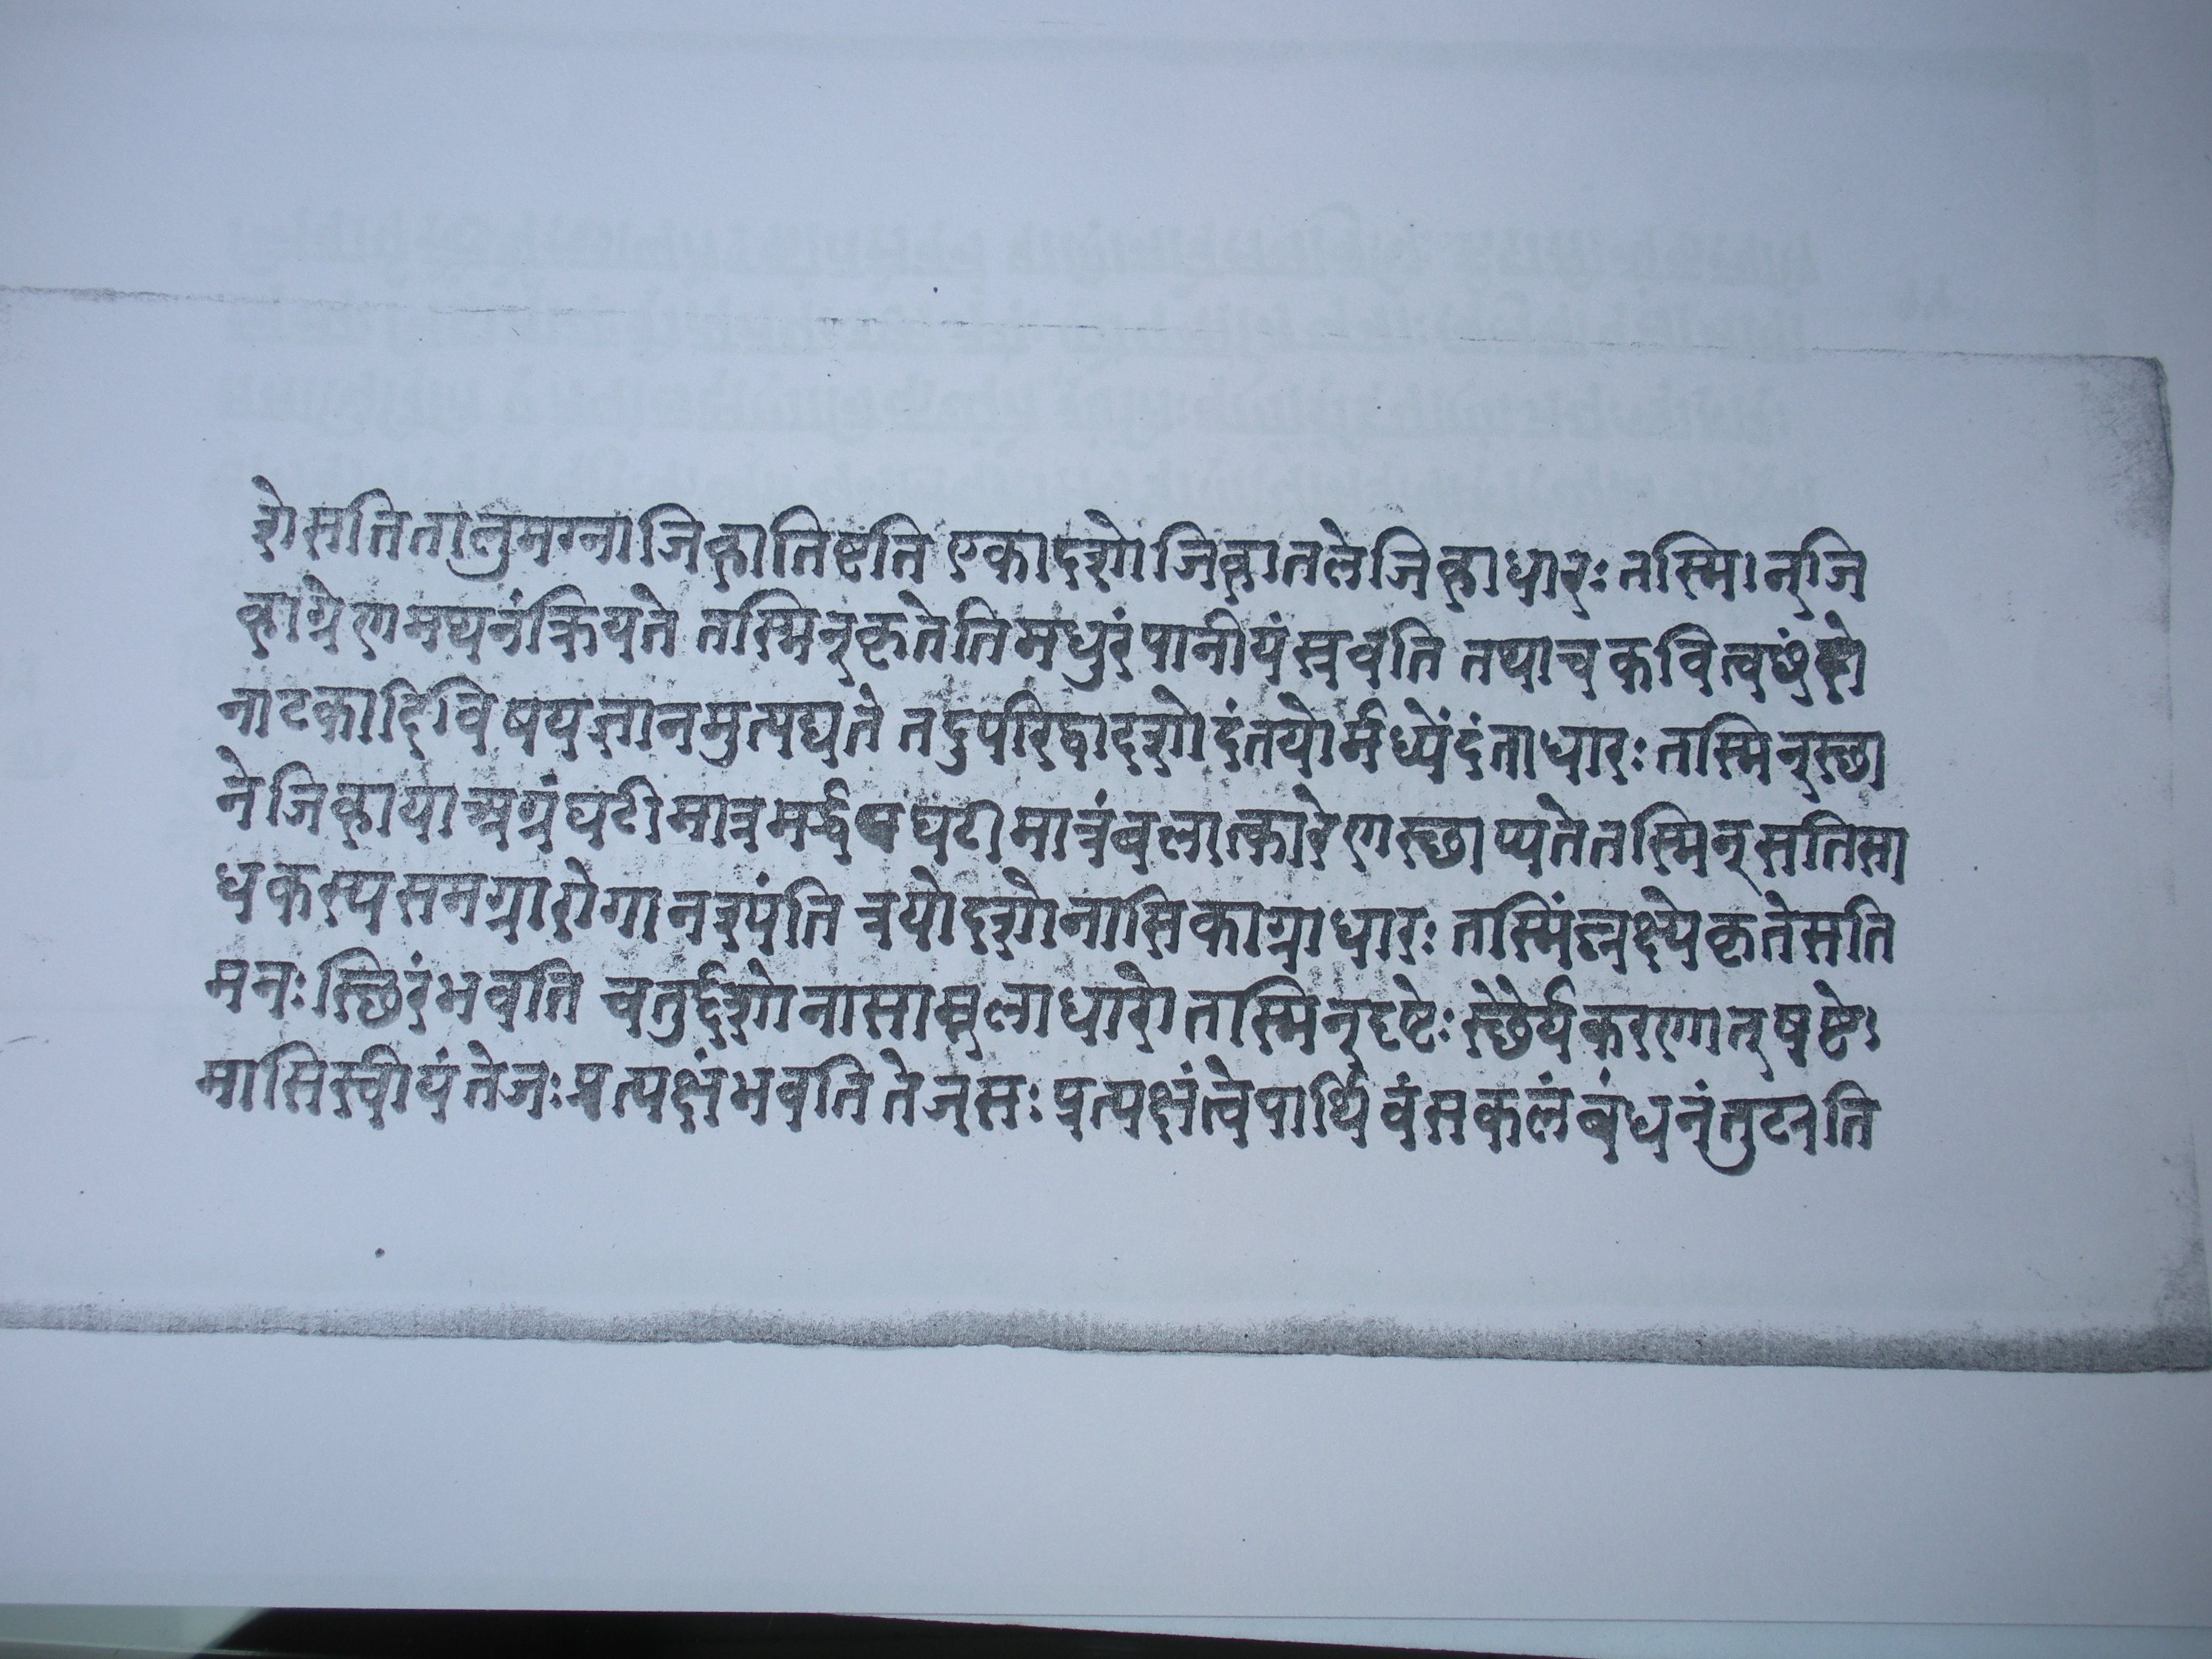 शे सति तालुमग्ना जिव्हा तिष्टति एकादशो जिव्हातले जिव्हाधारः तस्मिन् जि
व्हाग्रेण मथनं क्रियते तस्मिन् कृतेति मधुरं पानीयं स्रवति तथा च कवित्वछंदो
नाटकादिविषयज्ञानमुत्पद्यते तदुपरि द्वादशो दंतयोर्मध्ये दंताधारः तस्मिन् स्छा
ने जिव्हाया अग्रं घटीमात्रमर्द्ध घटीमात्रं बलात्कारेण स्छाप्यते तस्मिन् सति सा
धकस्य समग्रा रोगा नश्यंति त्रयोदशो नासिकाग्राधारः तस्मिंल्लक्ष्ये कृते सति
मनः स्छिरं भवति चतुर्दशो नासामूलाधारो तस्मिन् दृष्टेः स्छैर्यकरणात् षष्टे
मासि स्वीयं तेजः प्रत्यक्षं भवति तेजसः प्रत्यक्षंत्वे पार्थिवं सकलं बंधनं तुटति